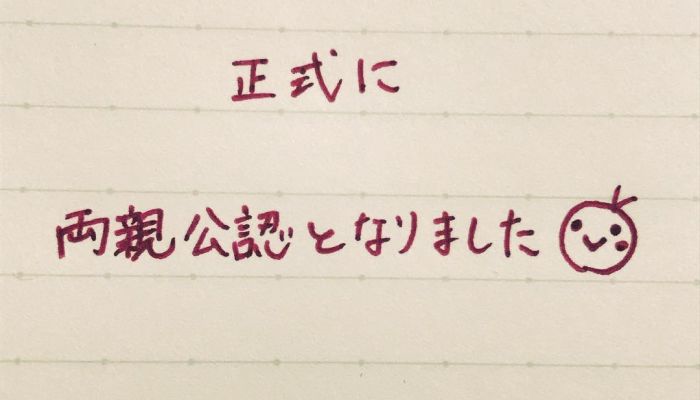 正式に
両親公認となりました